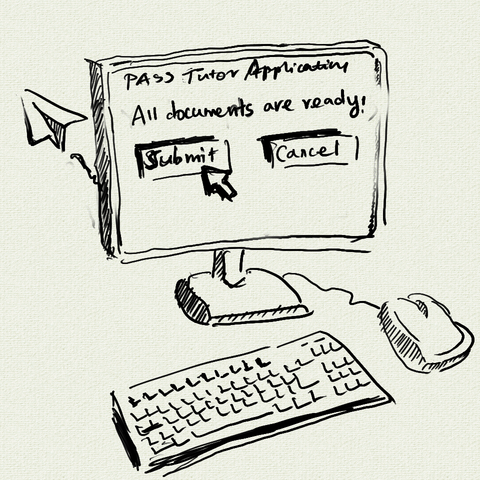 PASS Tutor Application
All documents are ready!
Submit
Cancel